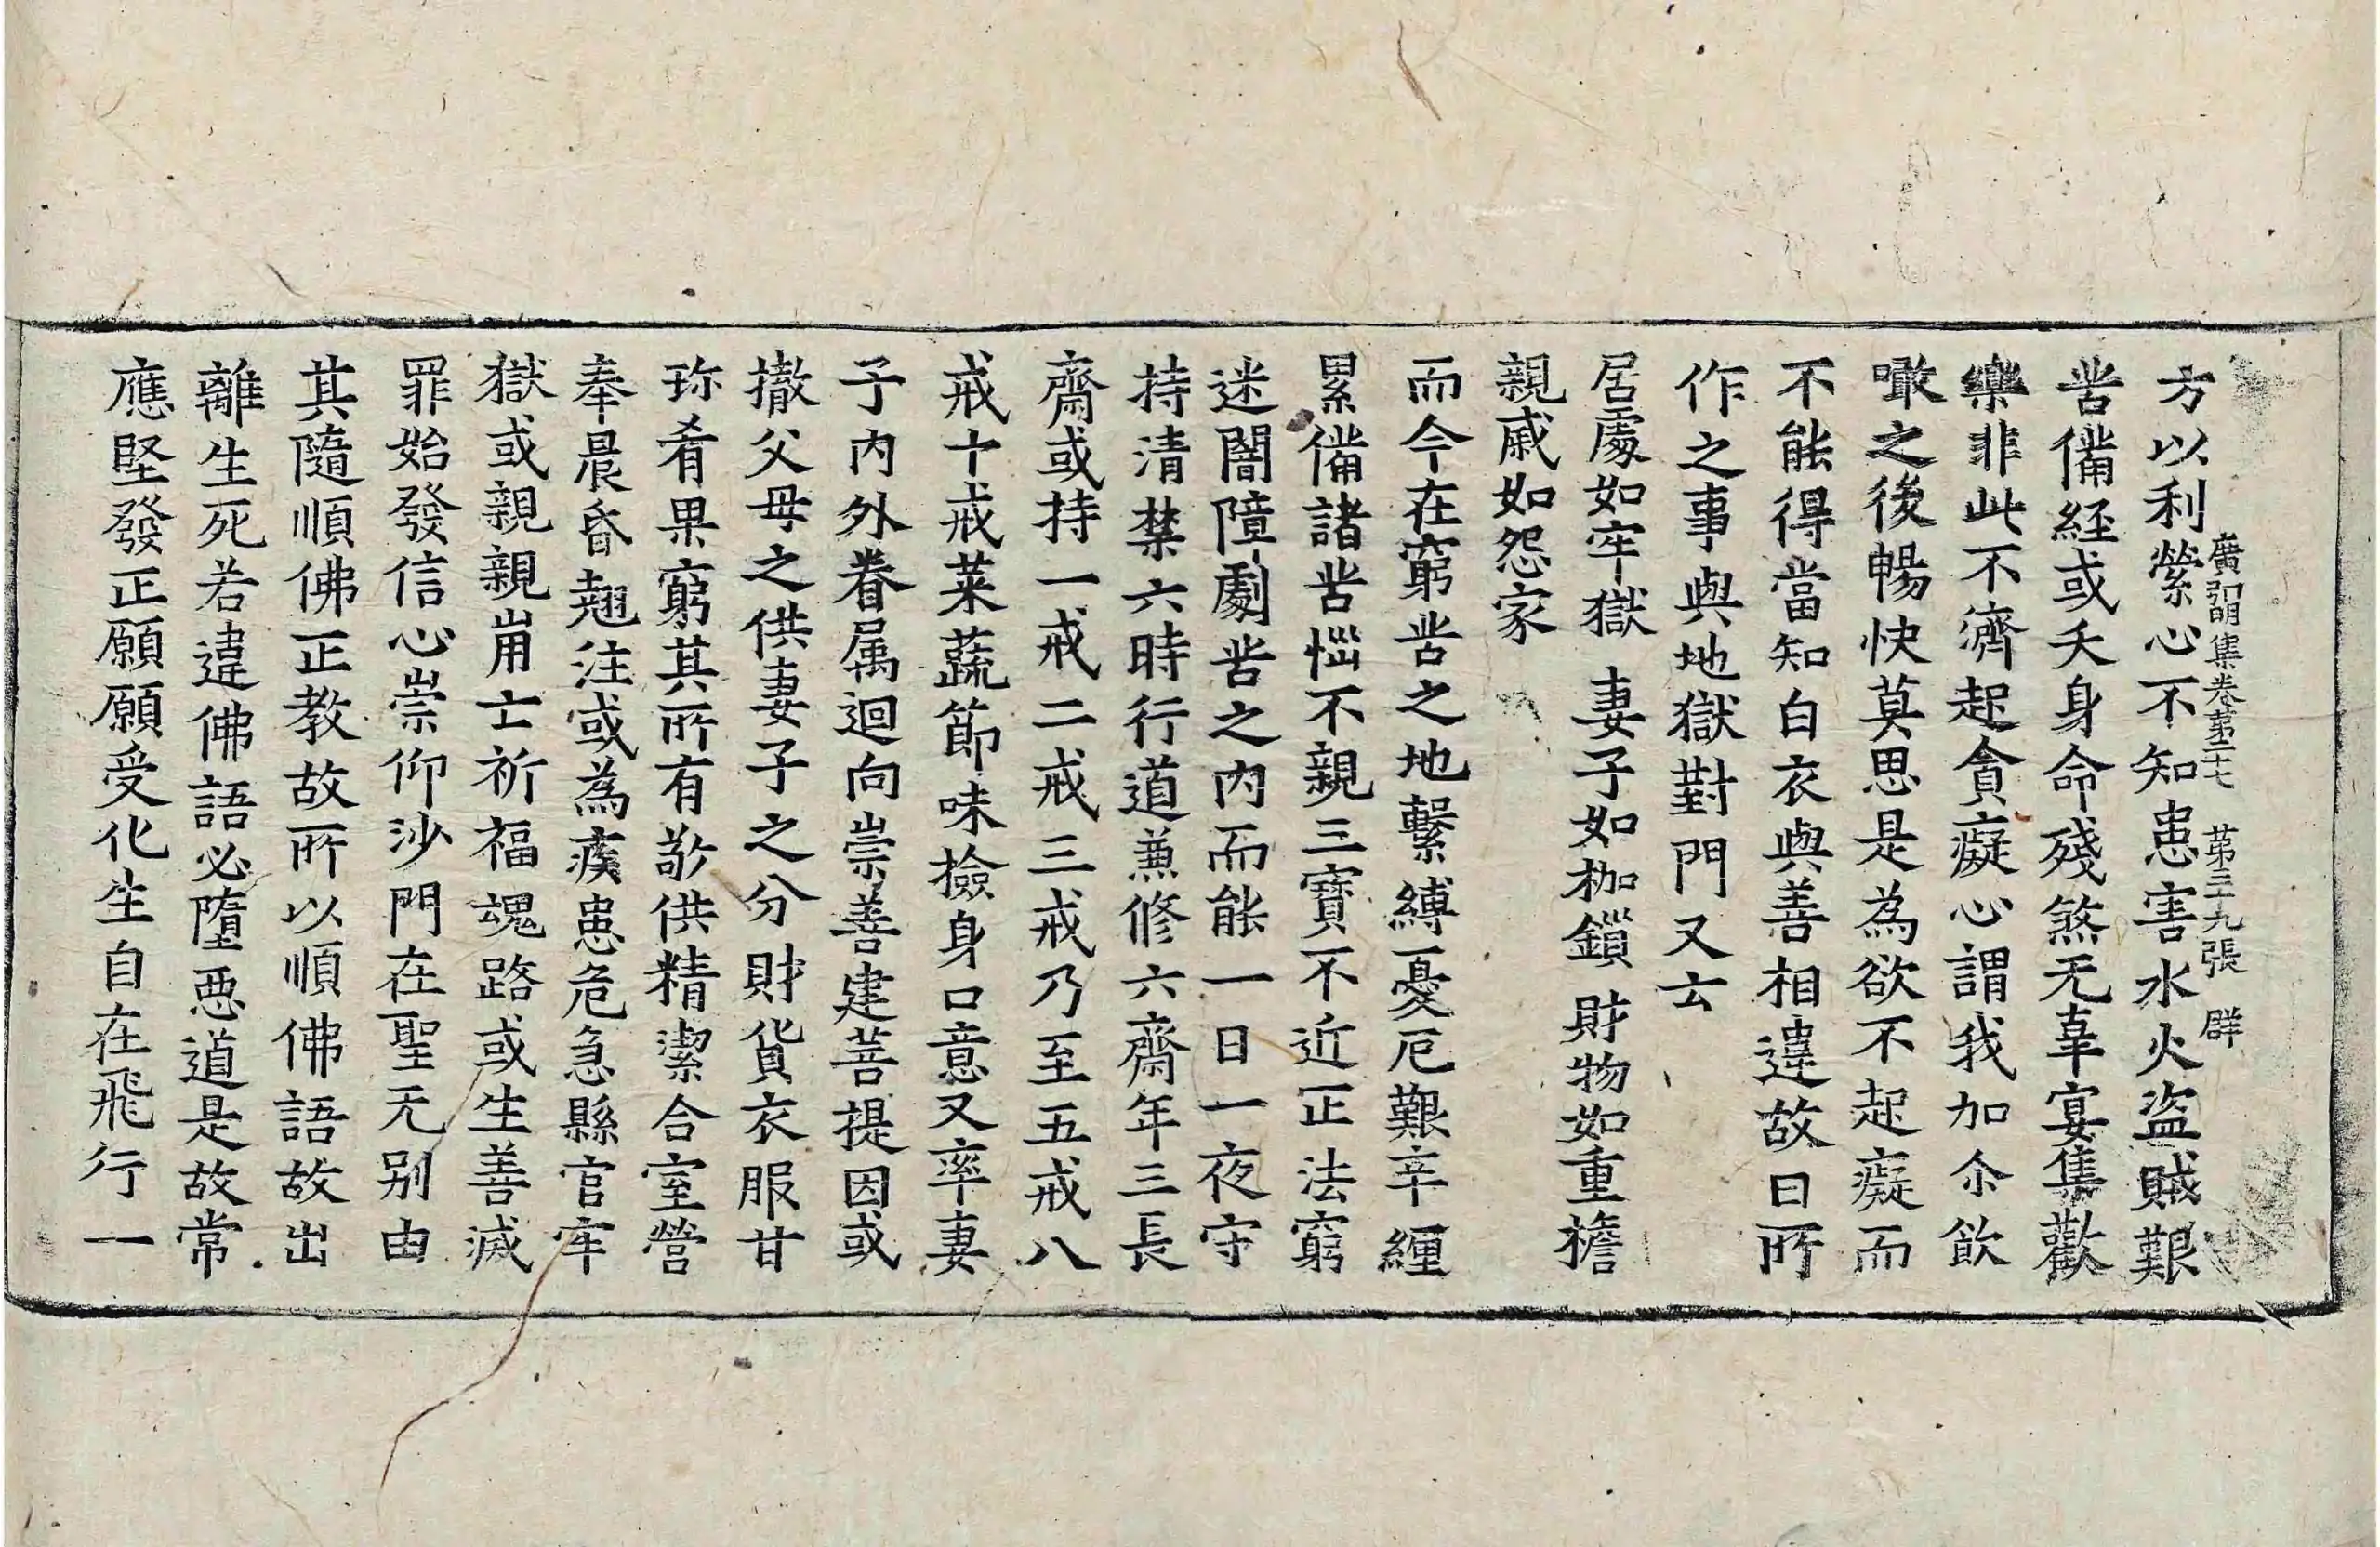 廣弘明集卷第二十七 第三九張 群
方以利縈心不知患害水火盜賊艱
苦備經或夭身命殘煞无辜宴集歡
樂非此不濟起貪癡心謂我加尒飲
噉之後暢快莫思是為欲不起癡而
不能得當知白衣與善相違故曰所
作之事與地獄對門又云
居處如牢獄 妻子如枷鎖 財物如重擔
親戚如怨家
而今在窮苦之地繫縛憂厄艱辛纏
累備諸苦惱不親三寶不近正法窮
迷闇障劇苦之內而能一日一夜守
持清禁六時行道兼修六齋年三長
齋或持一戒二戒三戒乃至五戒八
戒十戒菜蔬節味撿身口意又率妻
子內外眷属迴向崇善建菩提因或
撤父母之供妻子之分財貨衣服甘
珎肴果窮其所有敬供精潔合室營
奉晨昏翹注或為疾患危急縣官牢
獄或親親崩亡祈福魂路或生善滅
罪始發信心崇仰沙門在聖无别由
其隨順佛正教故所以順佛語故出
離生死若違佛語必墮惡道是故常
應堅發正願願受化生自在飛行一